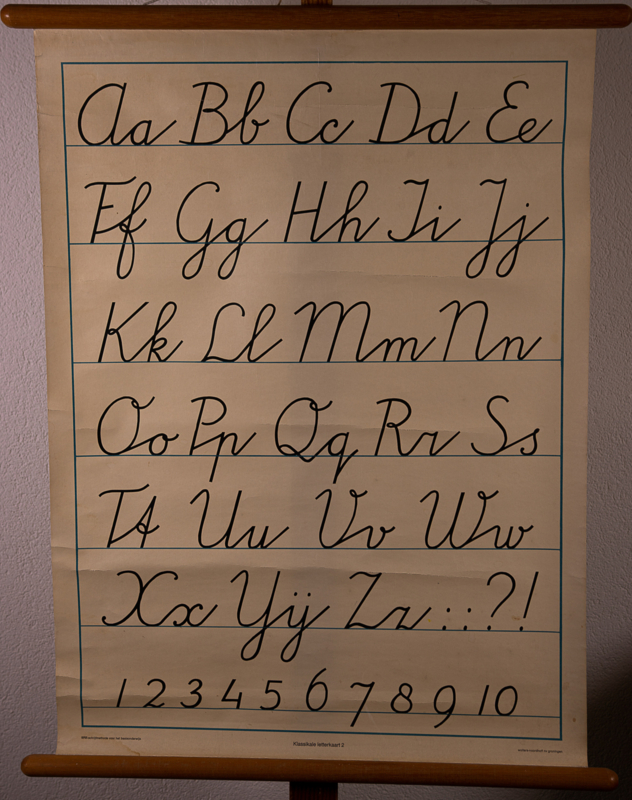 Aa Bb Cc Dd Ee
Ff Gg Hh Ii Jj
Kk Ll Mm Nn
Oo Pp Qq Rr Ss
Tt Uu Vv Ww
Xx Yij Zz : : ? !
1 2 3 4 5 6 7 8 9 10
Klassikale letterkaart 2